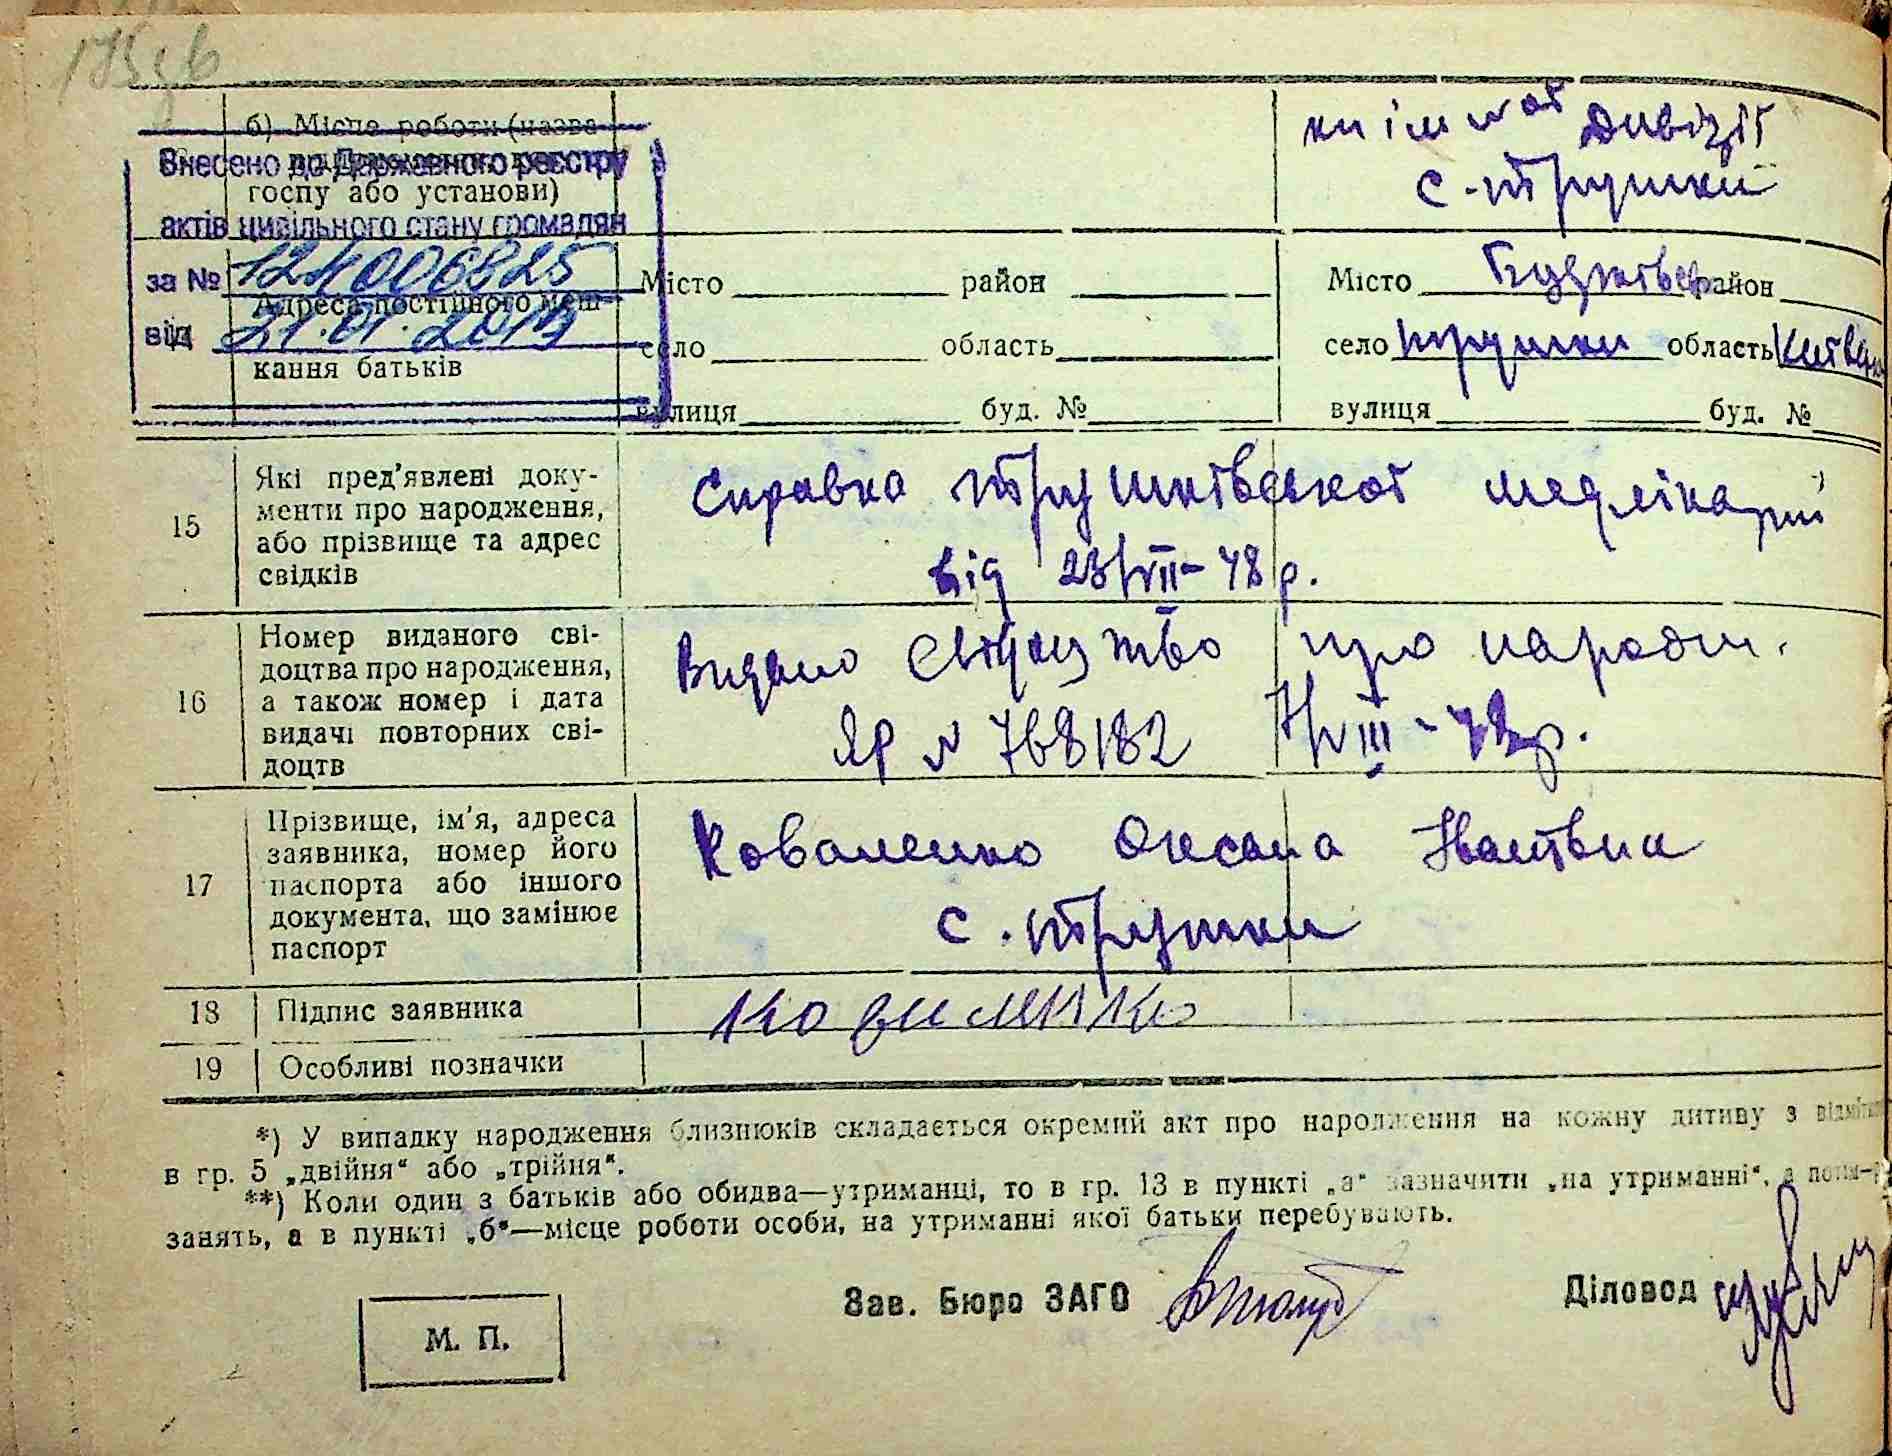 175зв
б) Місце роботи (назва
Внесено до Державного реєстру
госпу або установи)
актів цивільного стану громадян
за № 121006825
від 21.01.2013
Адреса постійного меш-
кання батьків
дивізії
с. Трушки
Місто район
село область
вулиця буд. №
Місто район
село Трушки область Київськ
вулиця буд. №
15
Які пред'явлені доку-
менти про народження,
або прізвище та адрес
свідків
Справка Трушківської медлікарні
від 23/VII-48 р.
16
Номер виданого сві-
доцтва про народження,
а також номер і дата
видачі повторних сві-
доцтв
Видано свідоцтво про народж.
ЯР № 768182 7/VIII-48р.
17
Прізвище, ім'я, адреса
заявника, номер його
паспорта або іншого
документа, що замінює
паспорт
Коваленко Оксана
с. Трушки
18 Підпис заявника
19 Особливі позначки
*) У випадку народження близнюків складається окремий акт про народження на кожну дитину з відмітк
в гр. 5 „двійня“ або „трійня“.
**) Коли один з батьків або обидва—утриманці, то в гр. 13 в пункті „а“ зазначити „на утриманні“, а
занять, а в пункті „б“—місце роботи особи, на утриманні якої батьки перебувають.
Зав. Бюро ЗАГС
Діловод
М. П.